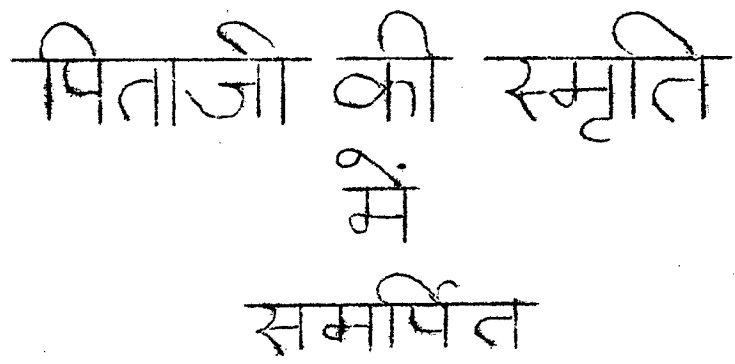 पिताजी की स्मृति
में
समर्पित